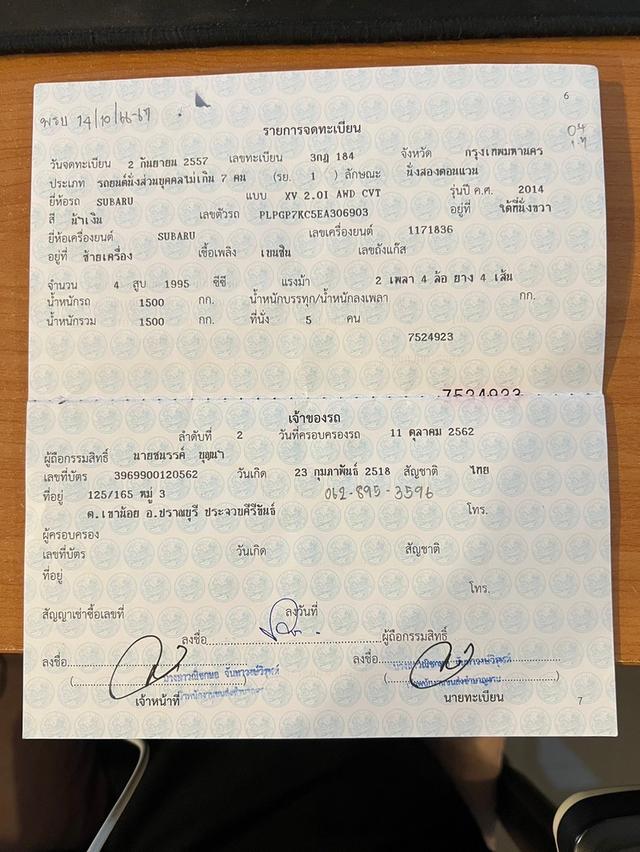 6
พรบ 14/10/66-67
รายการจดทะเบียน
วันจดทะเบียน 2 กันยายน 2557 เลขทะเบียน 3กฎ 184 จังหวัด กรุงเทพมหานคร
ประเภท รถยนต์นั่งส่วนบุคคลไม่เกิน 7 คน (รย. 1 ) ลักษณะ นั่งสองตอนแวน
ยี่ห้อรถ SUBARU แบบ XV 2.0I AWD CVT รุ่นปี ค.ศ. 2014
สี น้ำเงิน เลขตัวรถ PLPGP7KC5EA306903 อยู่ที่ ใต้ที่นั่งขวา
ยี่ห้อเครื่องยนต์ SUBARU เลขเครื่องยนต์ 1171836
อยู่ที่ ซ้ายเครื่อง เชื้อเพลิง เบนซิน เลขถังแก๊ส
จำนวน 4 สูบ 1995 ซีซี แรงม้า 2 เพลา 4 ล้อ ยาง 4 เส้น
น้ำหนักรถ 1500 กก. น้ำหนักบรรทุก/น้ำหนักลงเพลา กก.
น้ำหนักรวม 1500 กก. ที่นั่ง 5 คน
7524923
7524923
เจ้าของรถ
ลำดับที่ 2 วันที่ครอบครองรถ 11 ตุลาคม 2562
ผู้ถือกรรมสิทธิ์ นายชนรรค์
เลขที่บัตร 3969900120562 วันเกิด 23 กุมภาพันธ์ 2518 สัญชาติ ไทย
ที่อยู่ 125/165 หมู่ 3 062-895-3596
ต.เขาน้อย อ.ปราณบุรี ประจวบคีรีขันธ์ โทร.
ผู้ครอบครอง
เลขที่บัตร วันเกิด สัญชาติ
ที่อยู่
โทร.
สัญญาเช่าซื้อเลขที่ ลงวันที่
ลงชื่อ ผู้ถือกรรมสิทธิ์
ลงชื่อ ลงชื่อ
เจ้าหน้าที่ นายทะเบียน
7